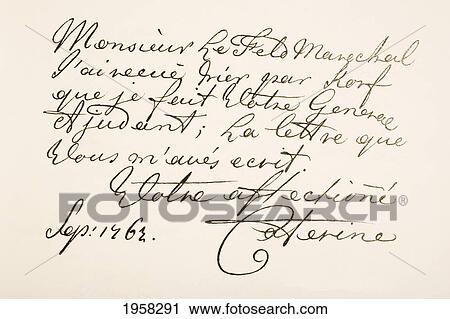 Monsieur Le Feld Marechal
J'ai recue hier par Korf
que je fait Votre General
Ajudant; La lettre que
Vous m'aves ecrit
Votre affectioné
Caterine
Sep: 1762.
FOTOSEARCH®
1958291 www.fotosearch.com